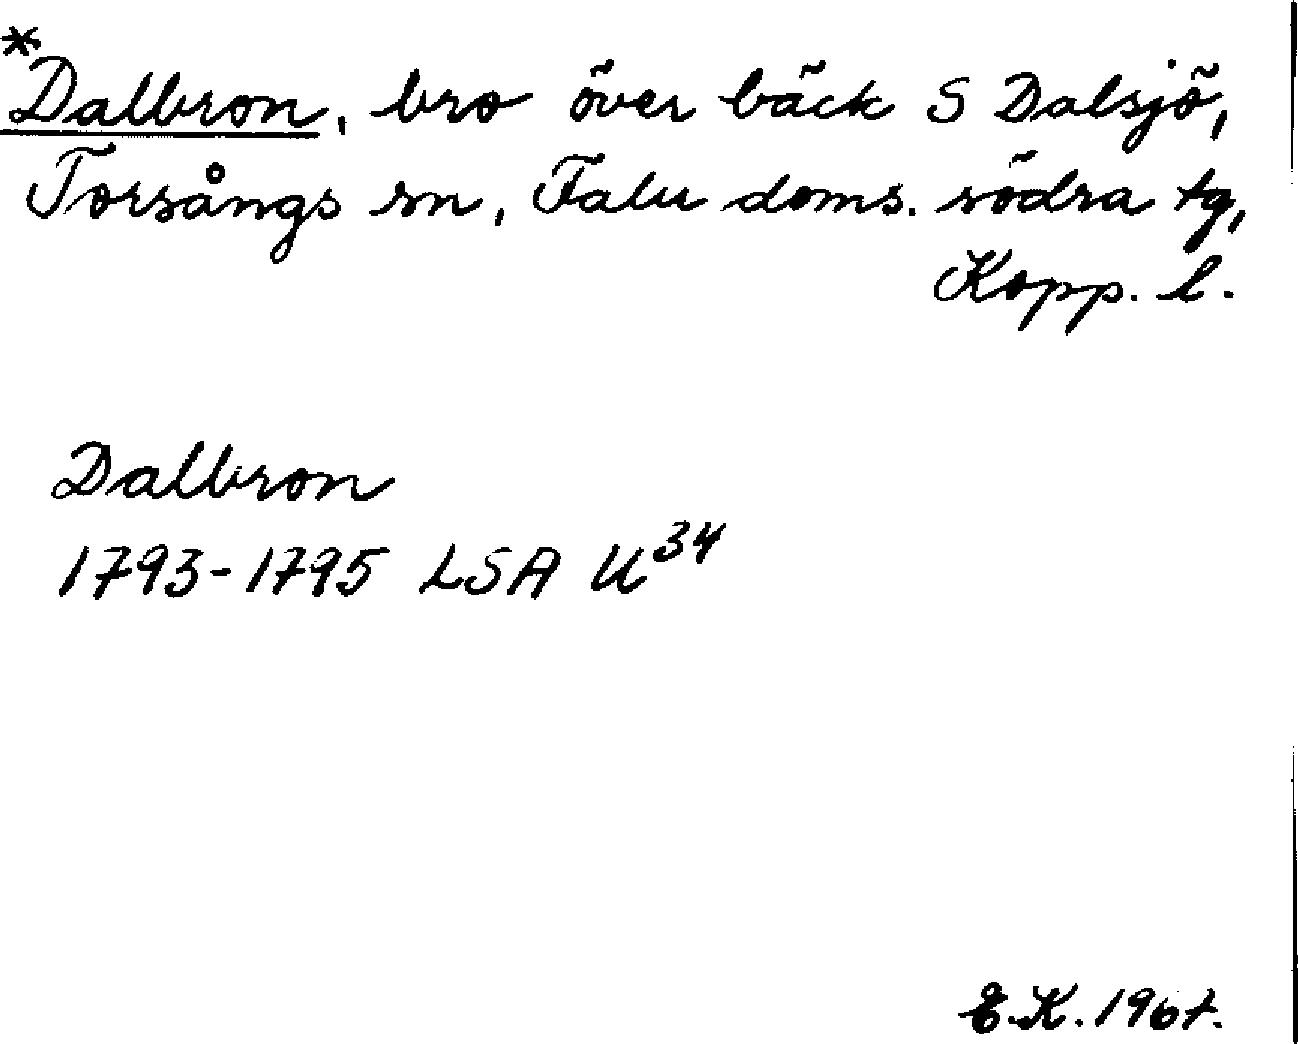 *Dalbron, bro över bäck S Dalsjö,
Torsångs sn, Falu doms. södra tg,
Kopp. l.
Dalbron
1793-1795 LSA U³⁴
E.K. 1967.